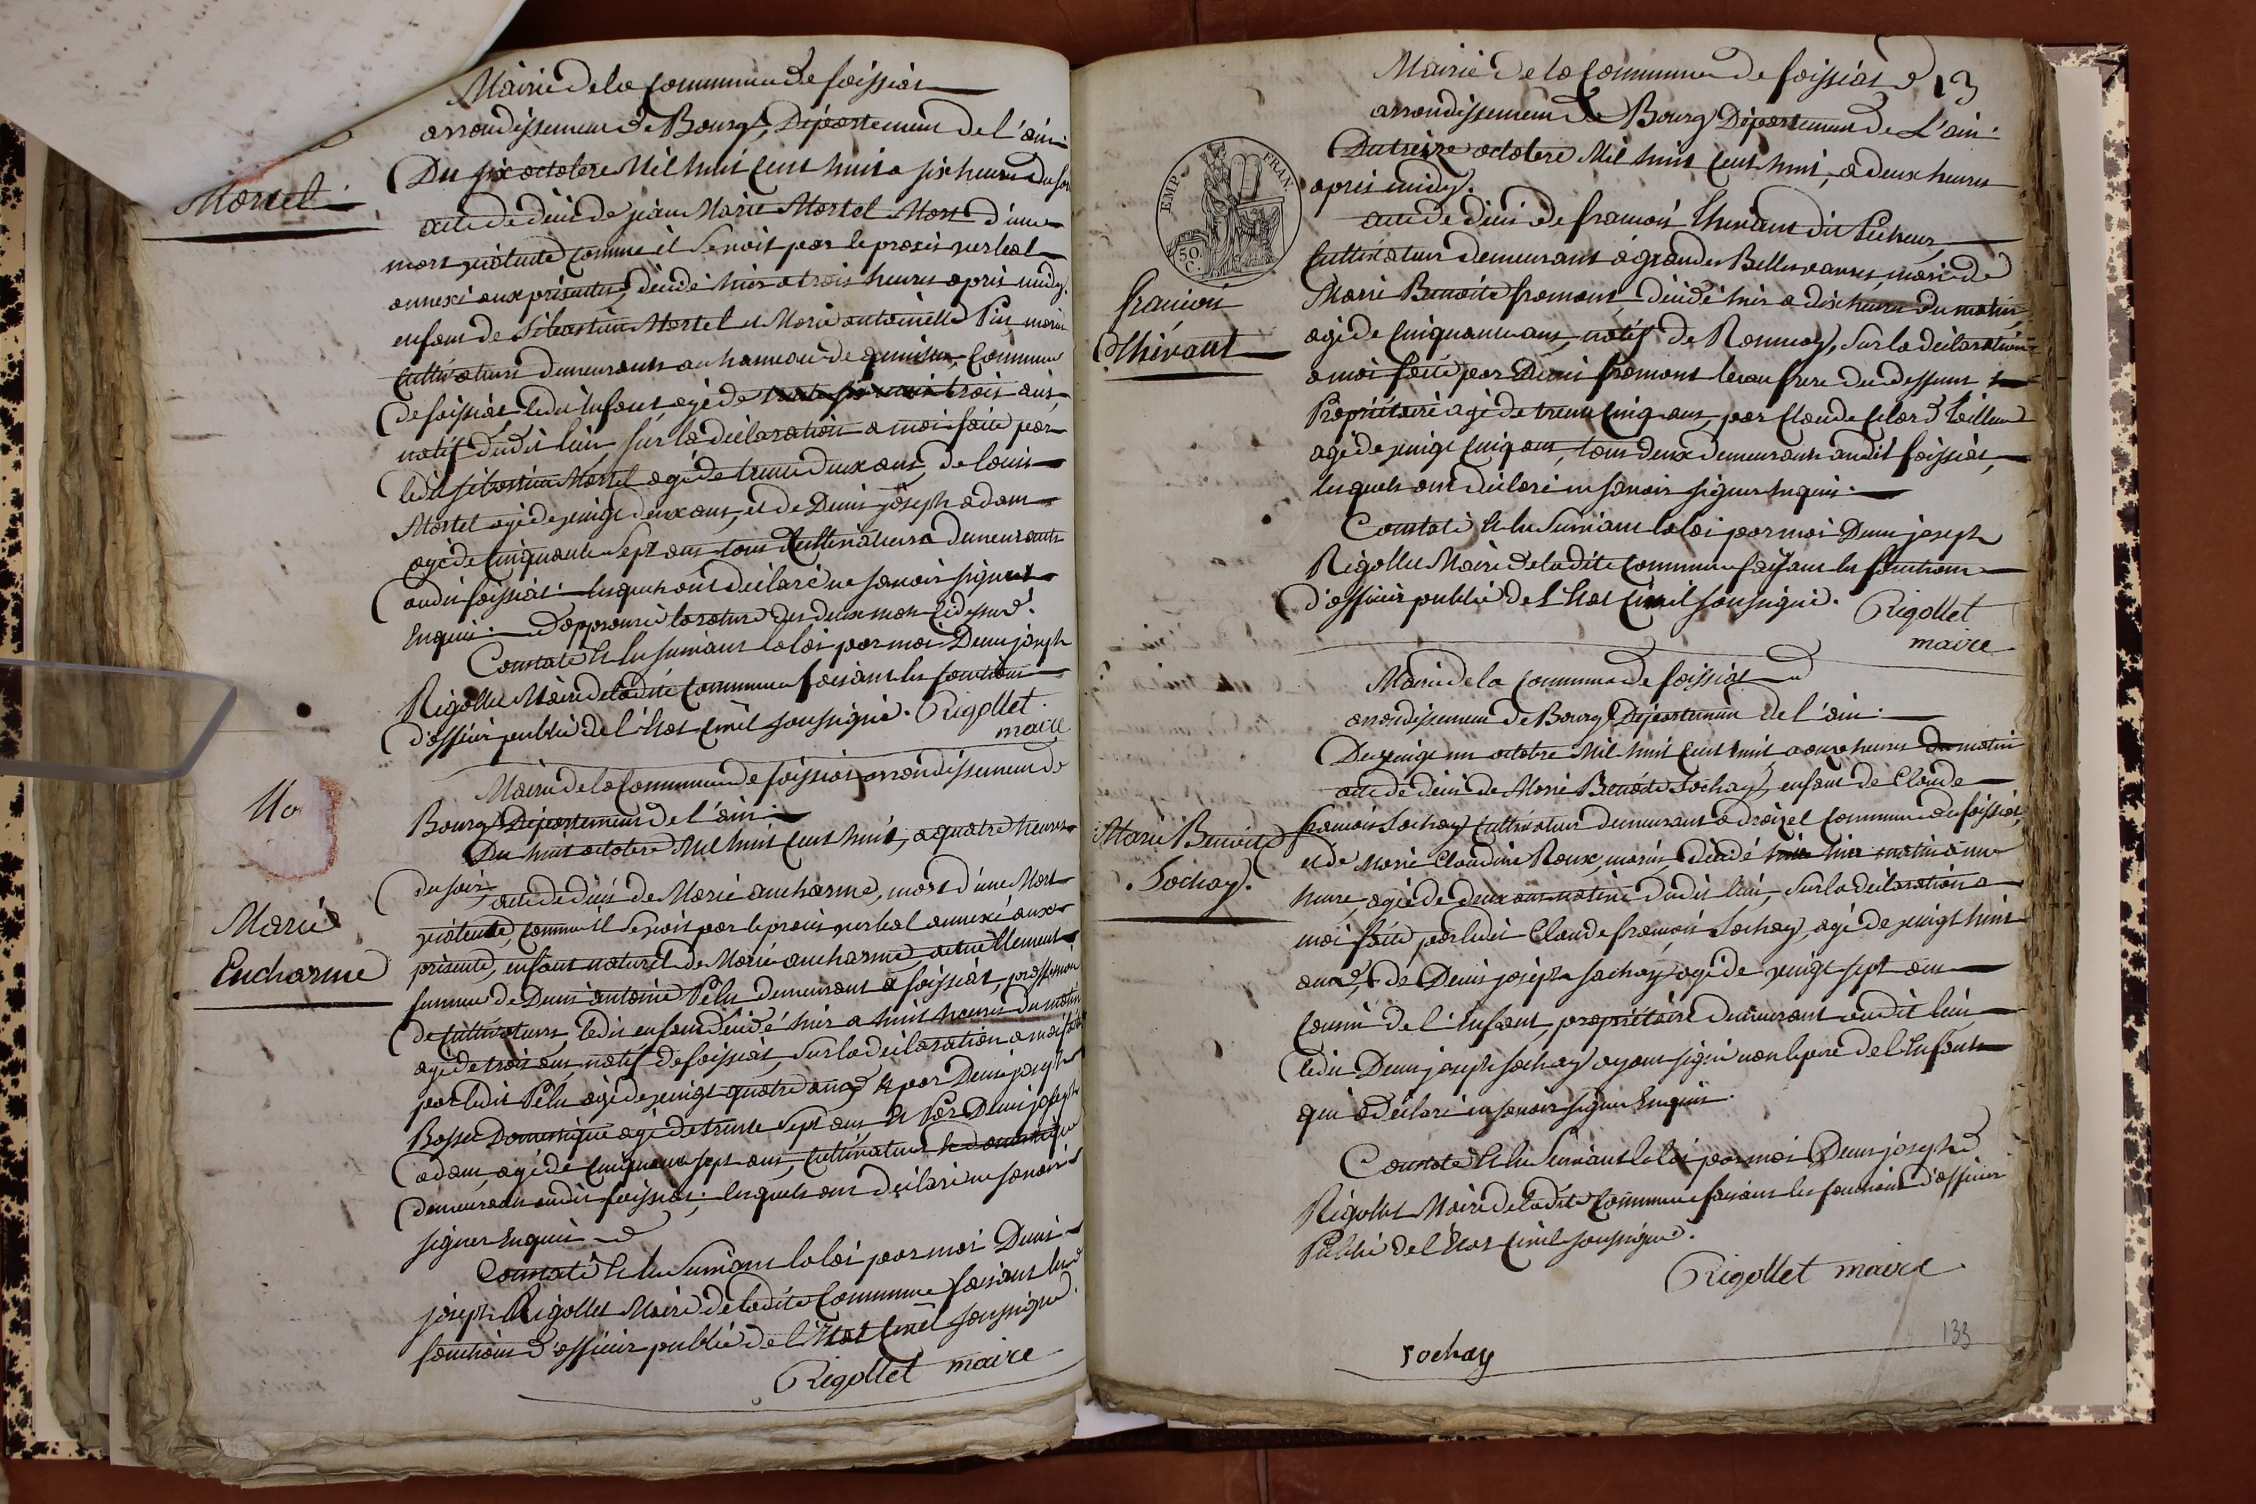 Mortel
Mairie de la Commune de foissiat
arrondissement de Bourg, Département de l'ain.
Du six octobre Mil huit Cent huit a six heures du soir
acte de décé de jean Marie Mortel Mort d'une
mort violente comme il se voit par le procès verbal
annexé aux présentes, décédé hier a trois heures après midy.
enfant de Sébastien Mortel et Marie antoinette Pin, mariés
Cultivateurs demeurants au hameau de Commune
de foissiat, ledit Enfant, agé de trois ans,
natif dudit lieu, sur la déclaration a moi faite par
ledit sébastien Mortel agé de trente deux ans, de louis
Mortel agé de vingt deux ans, et de Denis joseph adam
agé de Cinquante Sept ans tous Cultivateurs demeurants
audit foissiat. lesquels ont déclaré ne savoir signer
Enquis. approuvé la rature des deux mots cidessus.
Constaté Et lu suivant la loi par moi Denis joseph
Rigollet Maire de ladite Commune faisant les fonctions
d'officier public de l'Etat Civil soussigné. Rigollet
maire
Marie
Eucharme
Mairie de la Commune de foissiat arrondissement de
Bourg Département de l'ain.
Du huit octobre Mil huit Cent huit, a quatre heures
du soir.
acte de décé de Marie aucharme, mort d'une Mort
violente, comme il se voit par le procès verbal annexé aux
présente, enfant naturel de Marie aucharme actuellement
femme de Denis antoine Pélu demeurant a foissiat, profession
de Cultivateurs, ledit enfant décédé hier a huit heures du matin
agé de trois ans natif de foissiat, sur la déclaration a moi faite
par ledit Pélu agé de vingt quatre ans et par Denis joseph
Bosse Domestique agé de trente sept ans Et Par Denis joseph
adam, agé de Cinquante sept ans, Cultivateur
demeurant audit foissiat, lesquels ont déclaré ne savoir
signer Enquis
Constaté Et lu suivant la loi par moi Denis
joseph Rigollet Maire de ladite Commune faisant les
fonctions d'officier public de l'Etat Civil soussigné.
Rigollet maire
13
EMP. FRAN.
50.
C.
françois
Thévant
Mairie de la Commune de foissiat
arrondissement de Bourg Département de L'ain.
Du treize octobre Mil huit Cent huit, a deux heures
après midy.
acte de décé de françois Thévant dit Pécheur,
Cultivateur demeurant a grandes Bellevavres, mari de
Marie Benoite fromont, décédé hier a dix heures du matin,
agé de Cinquante ans, natif de Romenay, sur la déclaration
a moi faite par Denis fromont beau frere du deffunt
Propriétaire agé de trente Cinq ans, par Claude Tailleur
agé de vingt Cinq ans, tous deux demeurants audit foissiat,
lesquels ont déclaré ne savoir signer Enquis.
Constaté Et lu suivant la loi par moi Denis joseph
Rigollet Maire de ladite Commune faisant les fonctions
d'officier public de l'Etat Civil soussigné. Rigollet
maire
Marie Benoite
Sochay.
Mairie de la Commune de foissiat
arrondissement de Bourg Département de l'ain.
Du vingt un octobre Mil huit Cent huit, a onze heures du matin
acte de décé de Marie Benoite Sochay, enfant de Claude
françois Sochay Cultivateur demeurant a Commune de foissiat,
et de Marie Claudine Roux, mariés, décédé hier matin a une
heure, agée de deux ans native dudit lieu, sur la déclaration a
moi faite par ledit Claude françois Sochay, agé de vingt huit
ans, et de Denis joseph Sochay agé de vingt sept ans
Cousin de l'Enfant, propriétaire demeurant audit lieu
ledit Denis joseph Sochay ayant signé non le pere de l'Enfant
qui a déclaré ne savoir signer Enquis.
Constaté Et lu suivant la loi par moi Denis joseph
Rigollet Maire de ladite Commune faisant les fonctions d'officier
Public de l'Etat Civil soussigné.
Rigollet maire
sochay
133